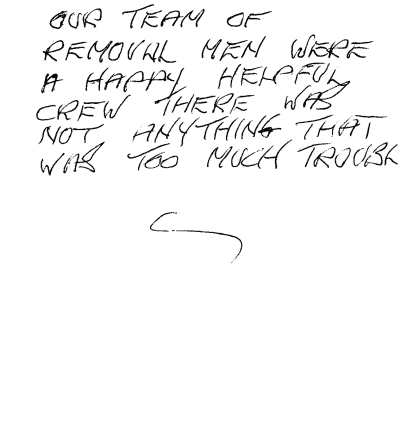 OUR TEAM OF
REMOVAL MEN WERE
A HAPPY HELPFUL
CREW THERE WAS
NOT ANYTHING THAT
WAS TOO MUCH TROUBL